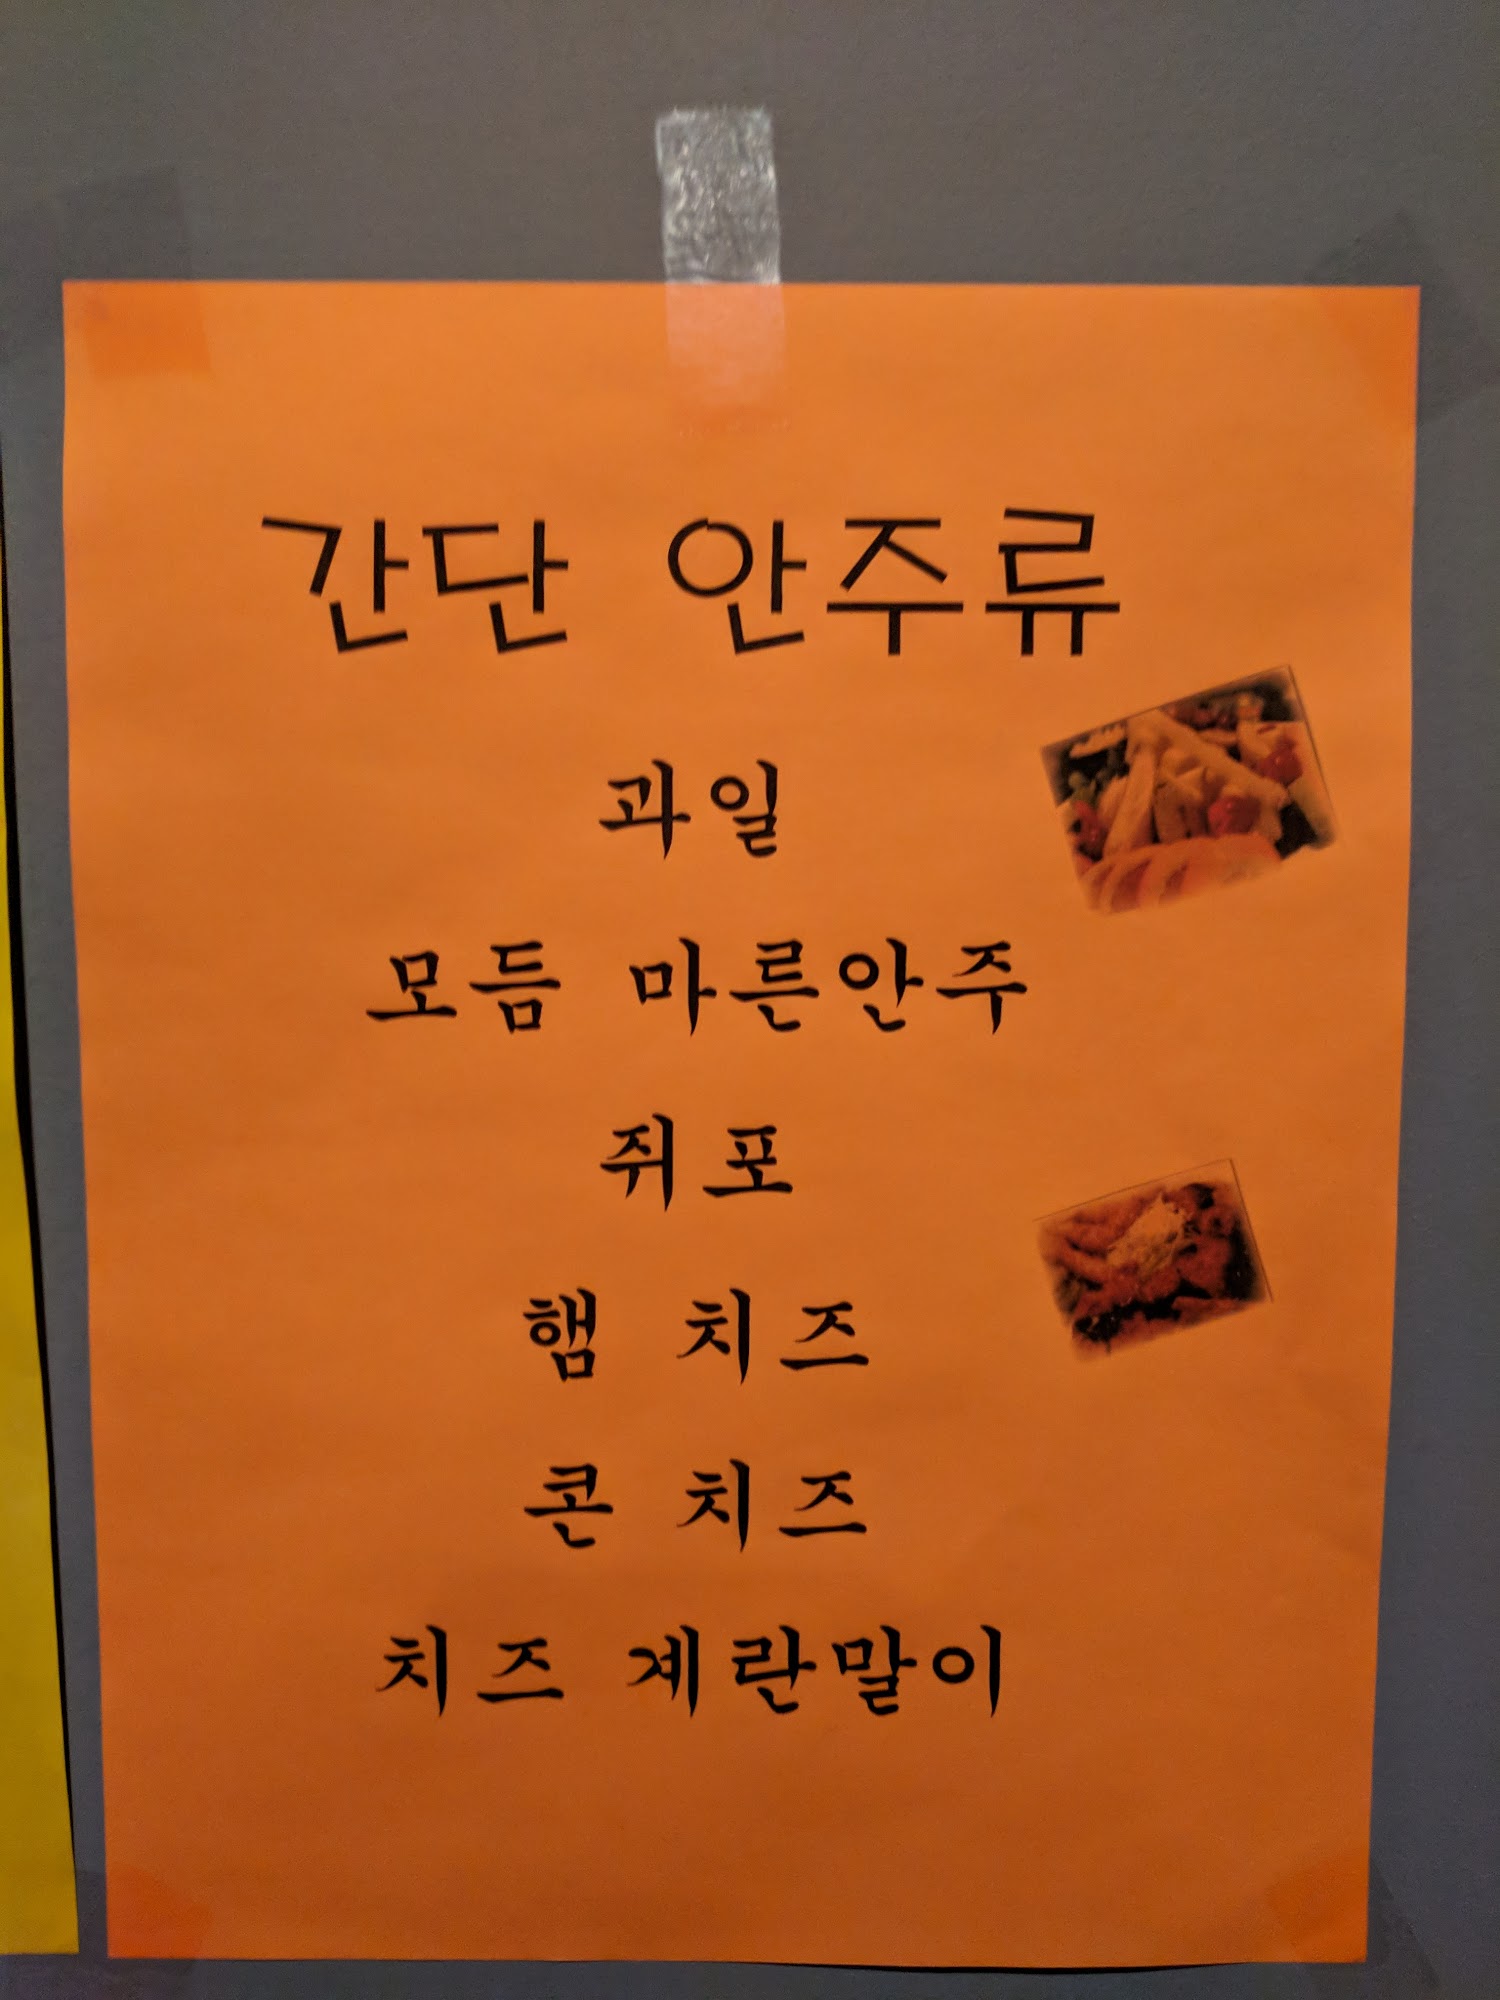 간단 안주류
과일
모듬 마른안주
쥐포
햄 치즈
콘 치즈
치즈 계란말이